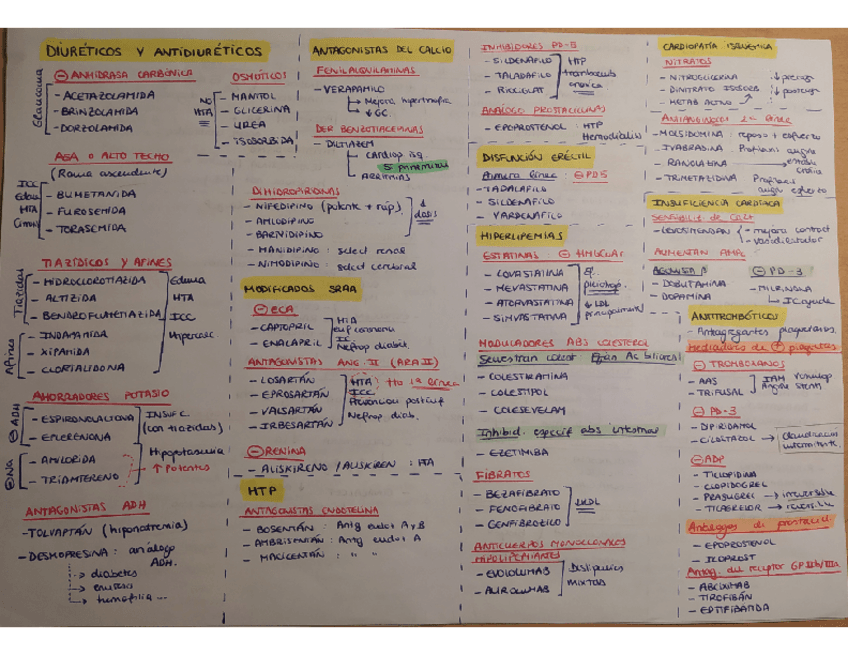 DIURÉTICOS Y ANTIDIURÉTICOS
⊖ ANHIDRASA CARBÓNICA
Glaucoma
- ACETAZOLAMIDA
- BRINZOLAMIDA
- DORZOLAMIDA
OSMÓTICOS
NO HTA
- MANITOL
- GLICERINA
- UREA
- ISOSORBIDA
ASA O ALTO TECHO
(Rama ascendente)
ICC
Edau
HTA
- BUMETANIDA
- FUROSEMIDA
- TORASEMIDA
TIAZÍDICOS Y AFINES
Tiazidas
- HIDROCLOROTIAZIDA
- ALTIZIDA
- BENDROFLUMETIAZIDA
Edema
HTA
ICC
Hipercalc.
Afines
- INDAPAMIDA
- XIPAMIDA
- CLORTALIDONA
AHORRADORES POTASIO
⊖ ADH
- ESPIRONOLACTONA
- EPLERENONA
INSUFC
(con tiazidas)
⊖ Na
- AMILORIDA
- TRIAMTERENO
Hipopotasemia
↑ Potentes
ANTAGONISTAS ADH
- TOLVAPTÁN (hiponatremia)
- DESMOPRESINA : análogo ADH.
→ diabetes
→ enuresis
→ hemofilia ...
ANTAGONISTAS DEL CALCIO
FENILALQUILAMINAS
- VERAPAMILO
→ Mejora hipertrofia
→ ↓ GC.
DER BENZOTIACEPINAS
- DILTIAZEM
→ cardiop isq.
ARRITMIAS
DIHIDROPIRIDINAS
- NIFEDIPINO (potente + ráp)
- AMLODIPINO
- BARNIDIPINO
↓ dosis
- MANIDIPINO : select renal
- NIMODIPINO : select cerebral
MODIFICADOS SRAA
⊖ ECA
- CAPTOPRIL
- ENALAPRIL
HTA
IC
Nefrop diabét.
ANTAGONISTAS ANG. II (ARA II)
- LOSARTÁN
- EPROSARTÁN
- VALSARTÁN
- IRBESARTÁN
HTA : tto 1ª línea
ICC
Prevención postinf
Nefrop diab.
⊖ RENINA
- ALISKIRENO / ALISKIREN : HTA
HTP
ANTAGONISTAS ENDOTELINA
- BOSENTÁN : Antg endot A y B
- AMBRISENTÁN : Antg endot A
- MACICENTÁN : " "
INHIBIDORES PD-5
- SILDENAFILO
- TALADAFILO
- RIOCIGUAT
HTP
tromboemb
crónica
ANÁLOGO PROSTACICLINAS
- EPOPROSTENOL : HTP
Hemodiálisis
DISFUNCIÓN ERÉCTIL
Primera línea : ⊖ PD5
- TADALAFILO
- SILDENAFILO
- VARDENAFILO
HIPERLIPEMIAS
ESTATINAS : ⊖ HMGCoAR
- LOVASTATINA
- MEVASTATINA
- ATORVASTATINA
- SIMVASTATINA
↓ LDL
principalment
MODULADORES ABS COLESTEROL
Secuestran colest Ac biliares
- COLESTIRAMINA
- COLESTIPOL
- COLESEVELAM
Inhibid. específ abs intestinal
- EZETIMIBA
FIBRATOS
- BEZAFIBRATO
- FENOFIBRATO
- GENFIBROZILO
↓ VLDL
ANTICUERPOS MONOCLONALES
HIPOLIPEMIANTES
- EVOLOCUMAB
- ALIROCUMAB
Dislipemias
MIXTAS
CARDIOPATÍA ISQUÉMICA
NITRATOS
- NITROGLICERINA
- DINITRATO ISOSORB
- METAB ACTIVO
↓ precarga
↓ postcarga
ANTIANGINOSOS 2ª línea
- MOLSIDOMINA : reposo + esfuerzo
- IVABRADINA : Profilaxis angina
- RANOLAZINA → estable crónica
- TRIMETAZIDINA Profilaxis angina esfuerzo
INSUFICIENCIA CARDÍACA
SENSIBILIZ de Ca2+
- LEVOSIMENDAN
- mejora contract
- vasodilatador
AUMENTAN AMPc
AGONISTA β
- DOBUTAMINA
- DOPAMINA
⊖ PD-3
- MILRINONA
→ IC aguda
ANTITROMBÓTICOS
- Antiagregantes plaquetarios.
Mediadores de ⊕ plaquetas
⊖ TROMBOXANOS
- AAS
- TRIFUSAL
⊖ PD-3
- DIPIRIDAMOL
- CILOSTAZOL → Claudicación intermitente
⊖ ADP
- TICLOPIDINA
- CLOPIDOGREL
- PRASUGREL → irreversible
- TICAGRELOR → reversible
Análogos de prostacicl.
- EPOPROSTENOL
- ILOPROST
Antag. del receptor GPIIb/IIIa
- ABCIXIMAB
- TIROFIBÁN
- EPTIFIBATIDA